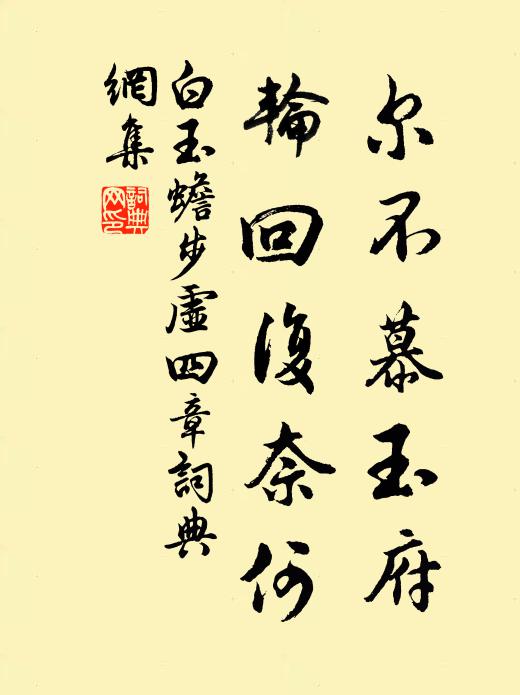 尔不慕玉府
輪回復奈何
白玉蟾步虛四章詞典
網集
詞典
网印